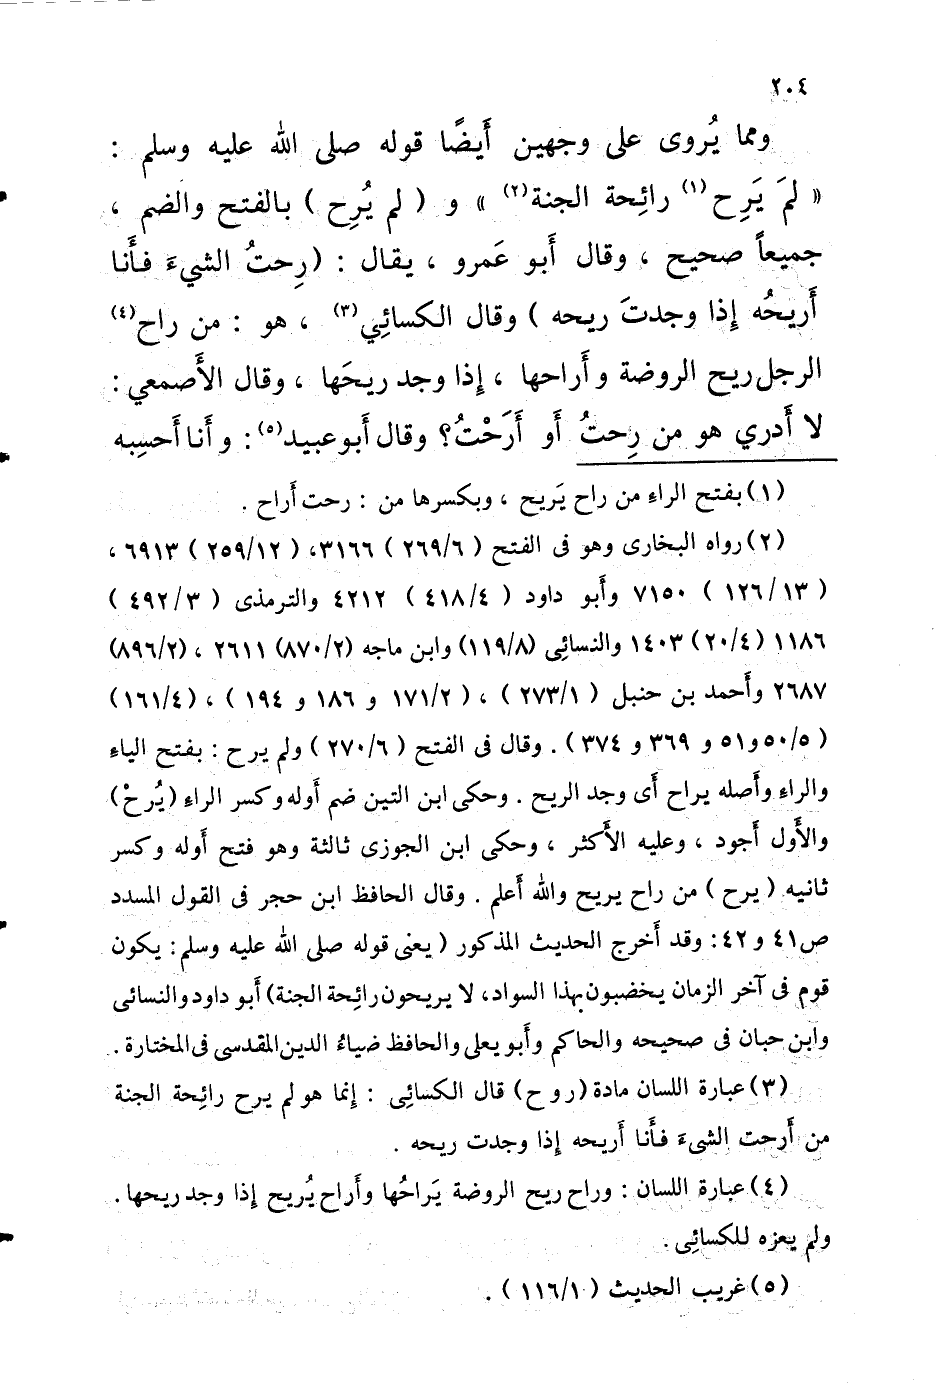 ٢٠٤
ومما يُروى على وجهين أَيضًا قوله صلى الله عليه وسلم :
« لمَ يَرِح(١) رائِحة الجنة(٢) » و ( لم يُرِح ) بالفتح والضم ،
جميعاً صحيح ، وقال أَبو عَمرو ، يقال : (رِحتُ الشيءَ فأَنا
أَرِيحُه إِذا وجدتَ ريحه ) وقال الكسائِي(٣) ، هو : من راح(٤)
الرجل ريح الروضة وأَراحها ، إِذا وجد ريحَها ، وقال الأَصمعي :
لا أَدري هو من رِحتُ أَو أَرَحْتُ؟ وقال أَبو عبيد(٥) : وأَنا أَحسِبه
(١) بفتح الراءِ من راح يَريح ، وبكسرها من : رحت أَراح .
(٢) رواه البخارى وهو فى الفتح ( ٢٦٩/٦ ) ٣١٦٦، ( ٢٥٩/١٢ ) ٦٩١٣ ،
( ١٢٦/١٣ ) ٧١٥٠ وأَبو داود ( ٤١٨/٤ ) ٤٢١٢ والترمذى ( ٤٩٢/٣ )
١١٨٦ (٢٠/٤) ١٤٠٣ والنسائِى (١١٩/٨) وابن ماجه (٨٧٠/٢) ٢٦١١ ، (٨٩٦/٢)
٢٦٨٧ وأَحمد بن حنبل ( ٢٧٣/١ ) ، ( ١٧١/٢ و ١٨٦ و ١٩٤ ) ، (١٦١/٤)
( ٥٠/٥ و٥١ و ٣٦٩ و ٣٧٤ ) . وقال فى الفتح ( ٢٧٠/٦ ) ولم يرح : بفتح الياءِ
والراءِ وأَصله يراح أَى وجد الريح . وحكى ابن التين ضم أَوله وكسر الراءِ (يُرِحْ)
والأَول أَجود ، وعليه الأَكثر ، وحكى ابن الجوزى ثالثة وهو فتح أَوله وكسر
ثانيه ( يرح ) من راح يريح والله أَعلم . وقال الحافظ ابن حجر فى القول المسدد
ص٤١ و ٤٢: وقد أَخرج الحديث المذكور ( يعنى قوله صلى الله عليه وسلم: يكون
قوم فى آخر الزمان يخضبون بهذا السواد، لا يريحون رائِحة الجنة) أَبو داود والنسائى
وابن حبان فى صحيحه والحاكم وأَبو يعلى والحافظ ضياءُ الدين المقدسى فى المختارة .
(٣) عبارة اللسان مادة ( روح ) قال الكسائِى : إِنما هو لم يرح رائِحة الجنة
من أَرحت الشىءَ فأَنا أَريحه إِذا وجدت ريحه .
(٤) عبارة اللسان : وراح ريح الروضة يَراحُها وأَراح يُريح إِذا وجد ريحها .
ولم يعزه للكسائِى .
(٥) غريب الحديث ( ١١٦/١ ) .